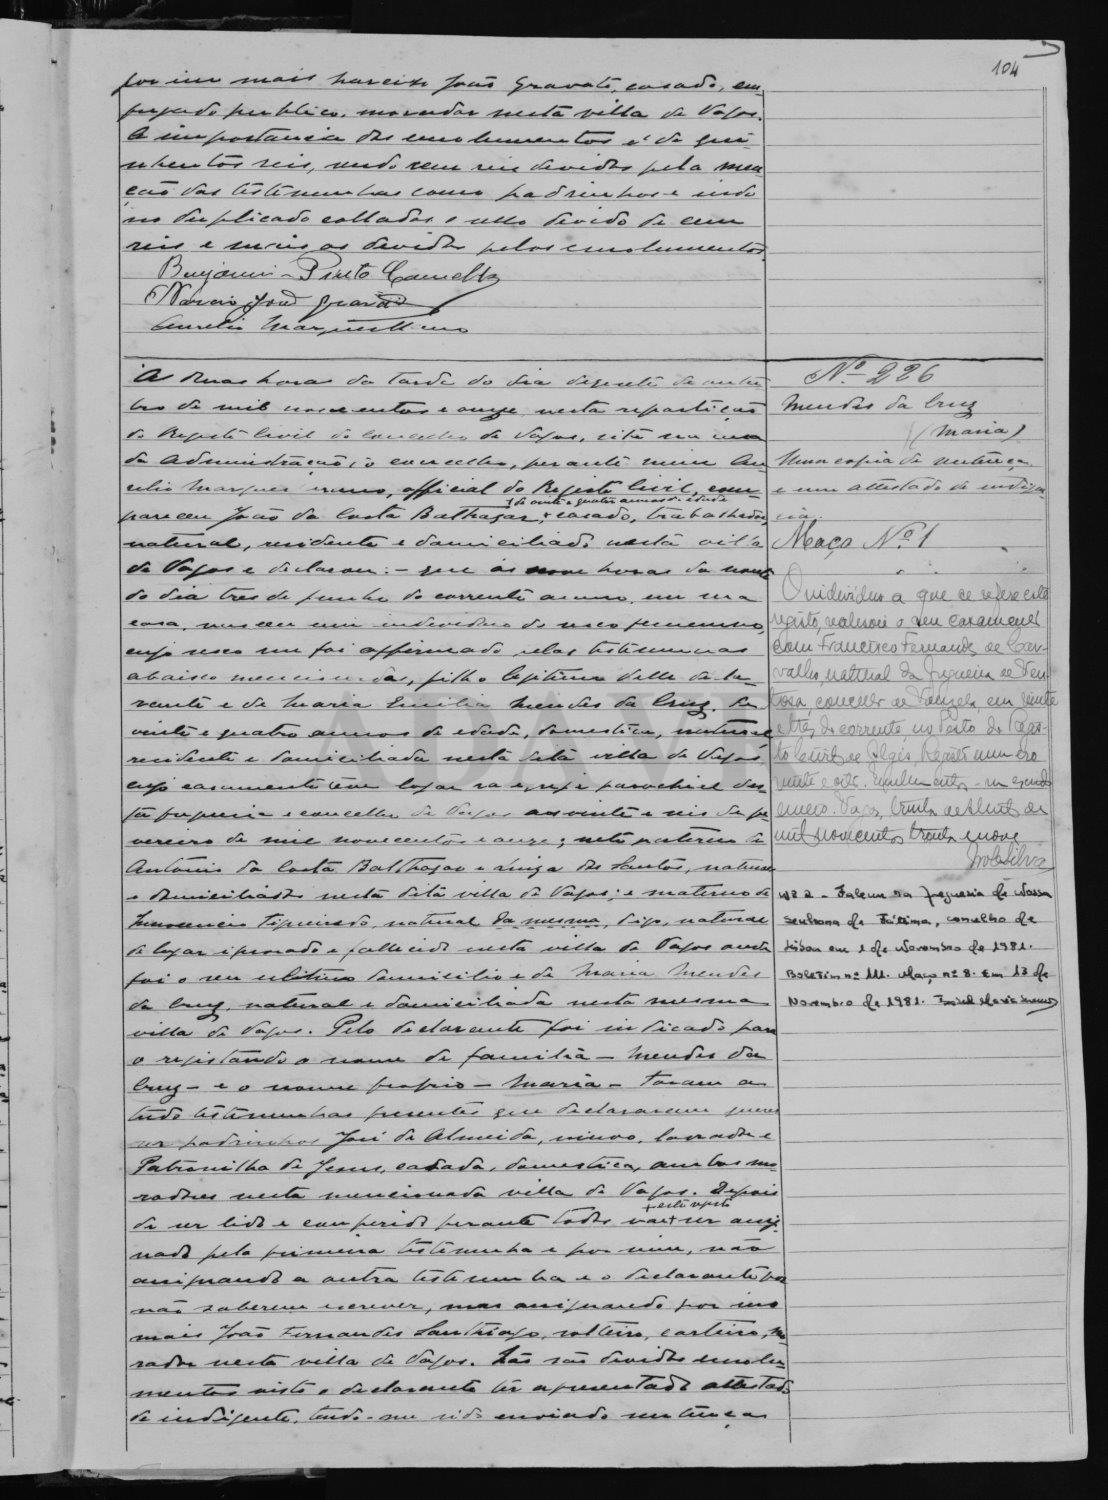 104
por im mais Narciso João Gravato, casado, em-
pregado publico, morador nesta villa de Vagos.
A importancia dos emolumentos é de qui-
nhentos reis, sendo cem reis devidos pela men-
ção das testemunhas como padrinhos e indo
no duplicado collados o sello devido de cem
reis e mais os devidos pelos emolumentos.
Benjamim Pinto Camello
Narciso João Gravato
Aurelio Marques
A's duas horas da tarde do dia dezesete de outu-
bro de mil novecentos e onze, nesta repartição
do Registo Civil do concelho de Vagos, sita na casa
da Administração do concelho, perante mim Au-
relio Marques, official do Registo Civil, com-
+ de vinte e quatro annos de edade
pareceu João da Costa Balthazar, + casado, trabalhador,
natural, residente e domiciliado nesta villa
de Vagos e declarou: - que ás nove horas da noute
do dia tres de junho do corrente anno, em sua
casa, nasceu um individuo do sexo femenino,
cujo sexo me foi affirmado pelas testemunhas
abaixo mencionadas, filho legitimo delle decla-
rante e de Maria Emilia Mendes da Cruz, de
vinte e quatro annos de edade, domestica, natural,
residente e domiciliada nesta dita villa de Vagos,
cujo casamento teve logar na egreja parochial des-
ta freguesia e concelho de Vagos aos vinte e seis de fe-
vereiro de mil novecentos e onze; neto paterno de
Antonio da Costa Balthazar e Luiza dos Santos, naturaes
e domiciliados nesta dita villa de Vagos; e materno de
Innocencio Figueiredo, natural da mesma, digo, natural
de logar ignorado e fallecido nesta villa de Vagos onde
foi o seu ultimo domicilio e de Maria Mendes
da Cruz, natural e domiciliada nesta mesma
villa de Vagos. Pelo declarante foi indicado para
o registando o nome de familia - Mendes da
Cruz - e o nome proprio - Maria - Foram a
tudo testemunhas presentes que declararam querer
ser padrinhos José de Almeida, viuvo, lavrador e
Patronilha de Jesus, casada, domestica, ambos mo-
radores nesta mencionada villa de Vagos. Depois
+ este registo
de ser lido e conferido perante todos vae + ser assi-
nado pela primeira testemunha e por mim, não
assignando a outra testemunha e o declarante por
não saberem escrever, mas assignando por im
mais João Fernandes Santhiago, solteiro, carteiro, mo-
rador nesta villa de Vagos. Não são devidos emolu-
mentos visto o declarante ter apresentado attestado
de indigente, tendo-me sido enviado sentença
Nº 226
Mendes da Cruz
(Maria)
Uma copia de sentença
e um attestado de indigen-
cia.
Maço Nº 1
O individuo a que se refere este
registo, realisou o seu casamento
com Francisco Fernandes de Car-
valho, natural da freguesia de Ven-
tosa, concelho de Vouzela em vinte
e três do corrente, no Posto do Regis-
to Civil de Algés, Registo numero
vinte e oito. Emolumentos
Vagos, trinta de
mil novecentos trinta e nove
Silva
Nº 2 - Faleceu na freguesia de Nossa
Senhora de Fátima, concelho de
Lisboa em 1 de Novembro de 1981.
Boletim nº 111. Maço nº 8. Em 13 de
Novembro de 1981.
ADAVR